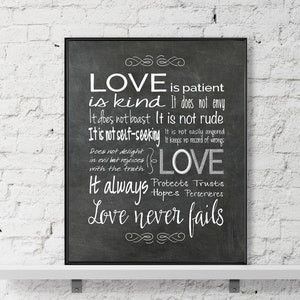 LOVE is patient
is kind It does not envy
It does not boast It is not rude
It is not self-seeking It is not easily angered
It keeps no record of wrongs
Does not delight
in evil but rejoices
with the truth
LOVE
It always Protects Trusts
Hopes Perseveres
Love never fails